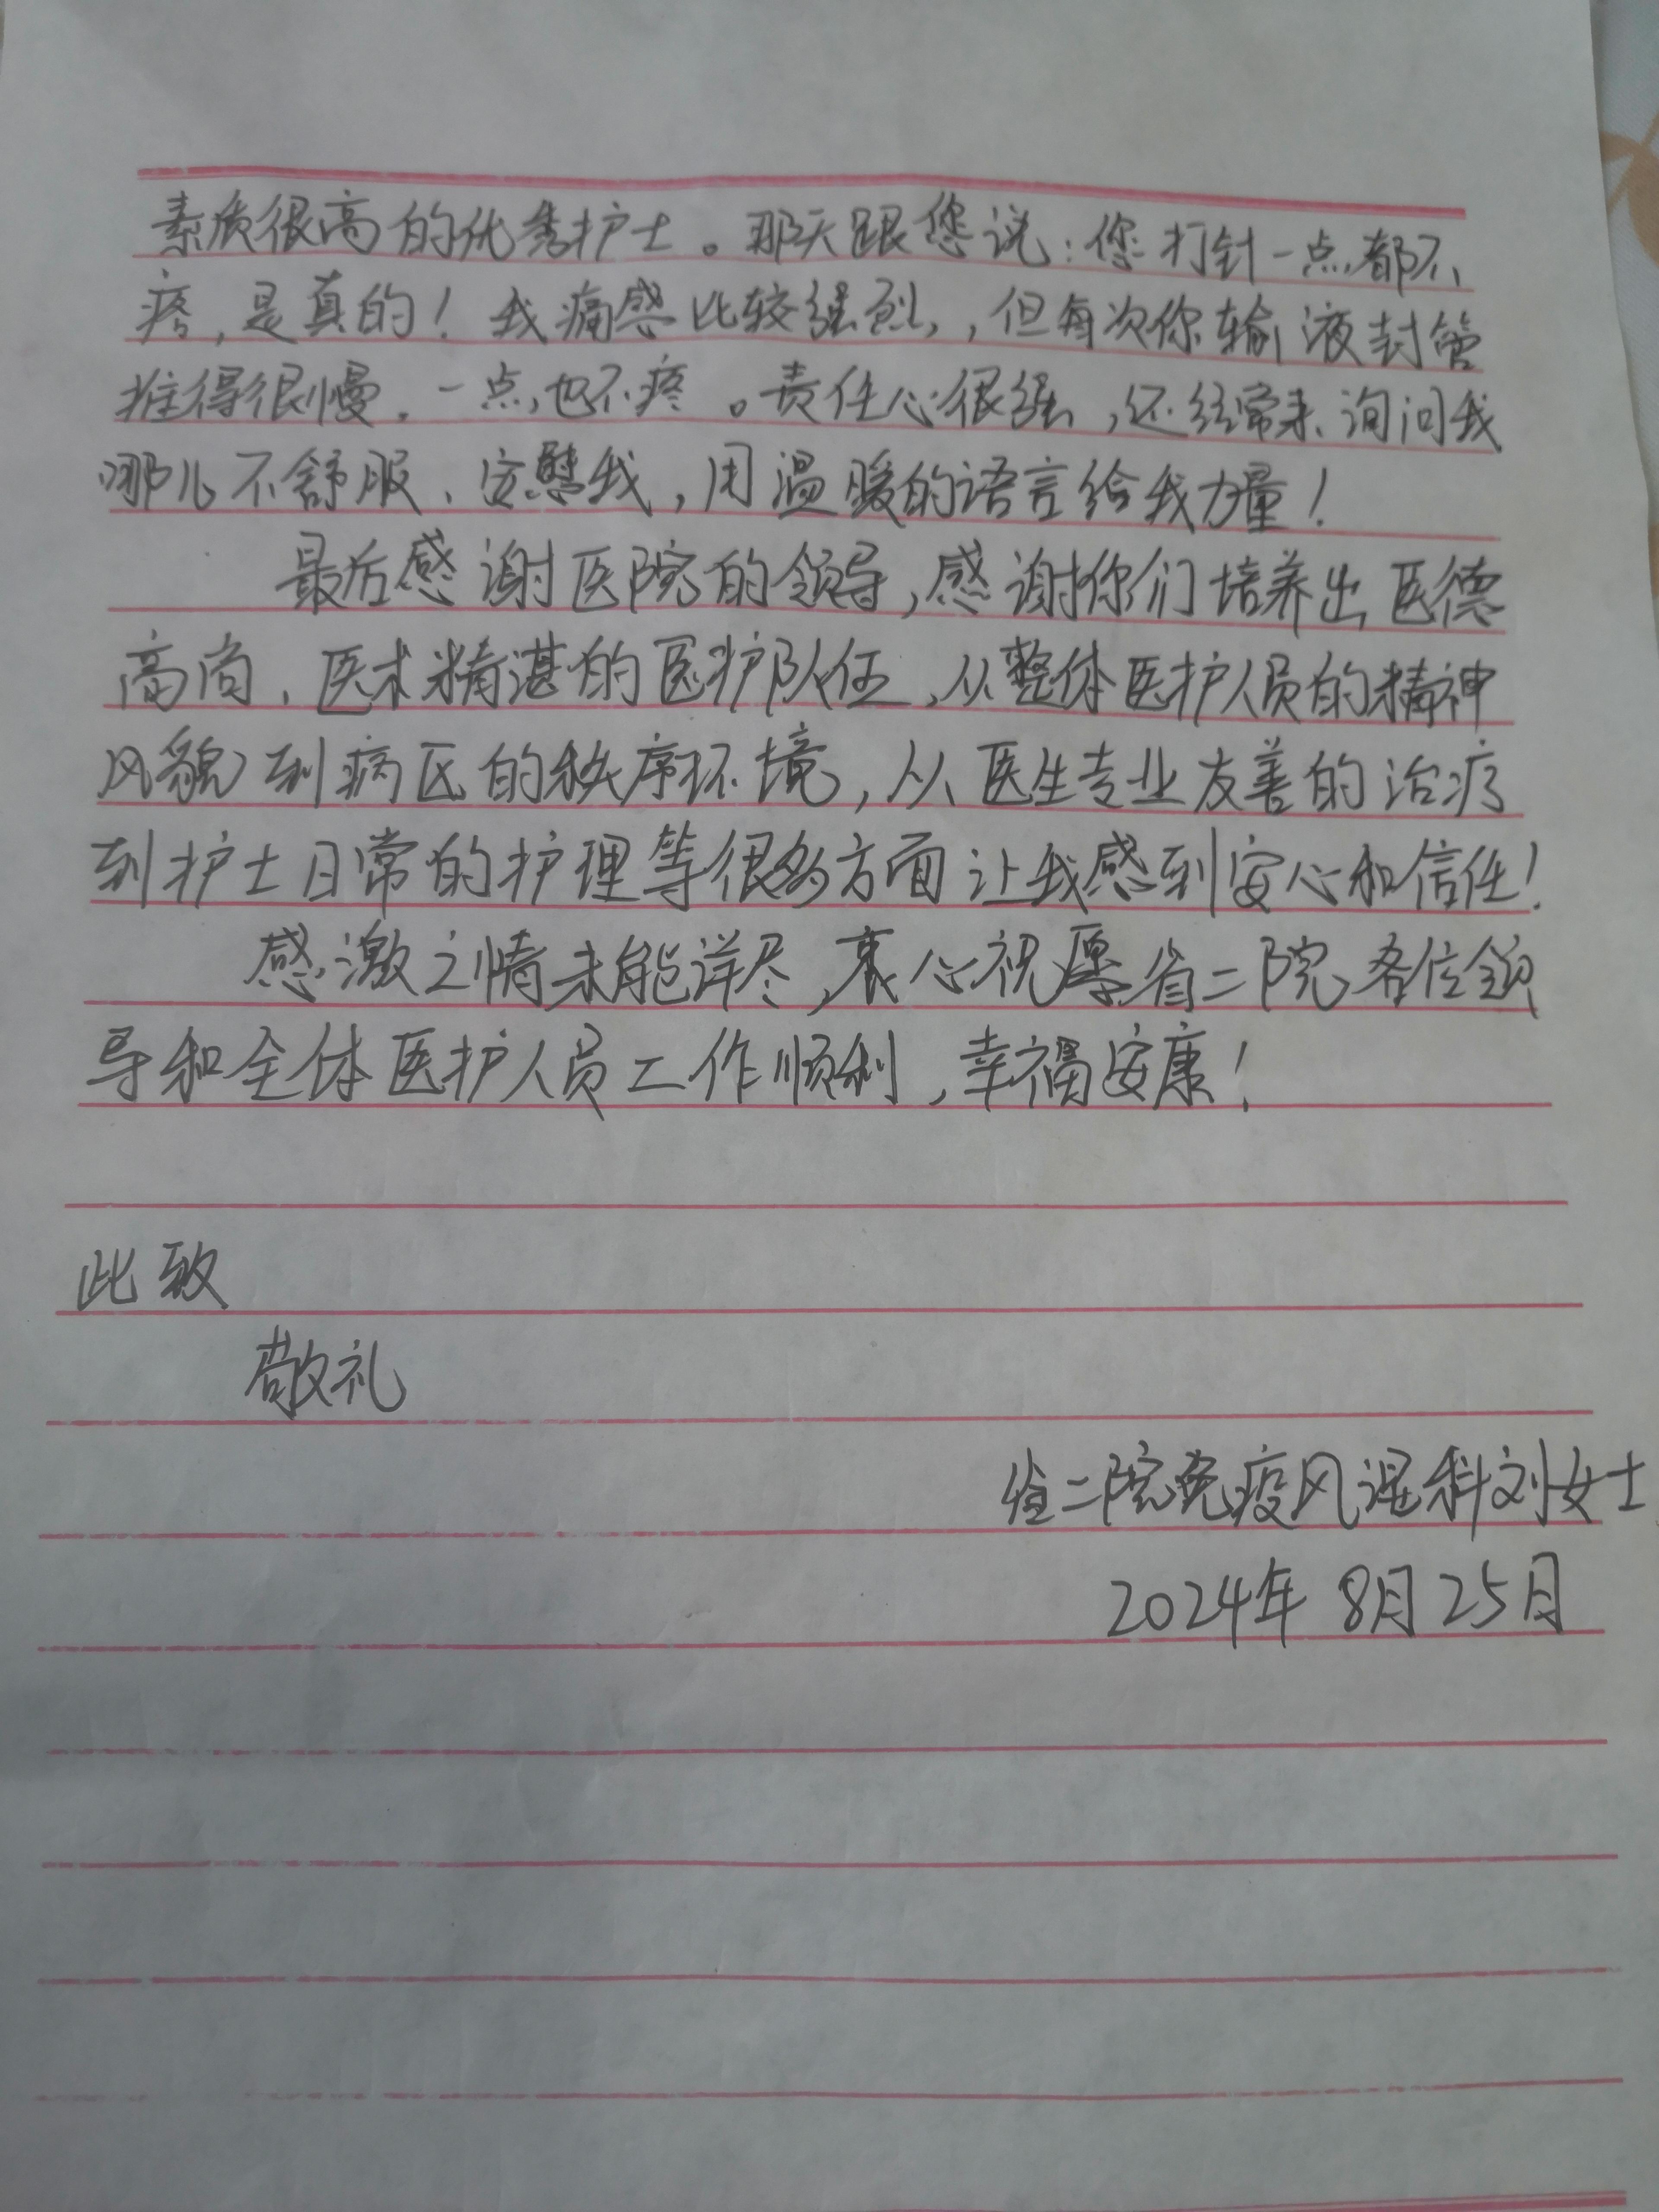 素质很高的优秀护士。那天跟您说：您打针一点都不
疼，是真的！我痛感比较强烈，但每次你输液封管
推得很慢，一点也不疼。责任心很强，还经常来询问我
哪儿不舒服、安慰我，用温暖的语言给我力量！
最后感谢医院的领导，感谢你们培养出医德
高尚、医术精湛的医护队伍，从整体医护人员的精神
风貌到病区的秩序环境，从医生专业友善的治疗
到护士日常的护理等很多方面让我感到安心和信任！
感激之情未能详尽，衷心祝愿省二院各位领
导和全体医护人员工作顺利，幸福安康！
此致
敬礼
省二院免疫风湿科刘女士
2024年8月25日